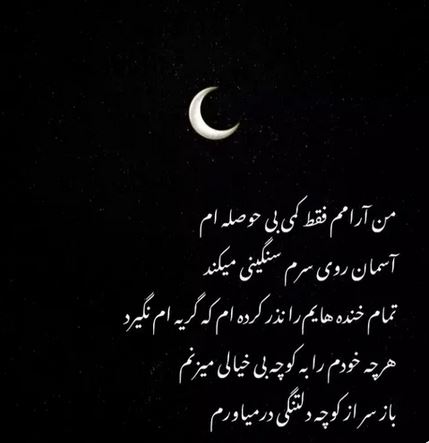 من آرامم فقط کمی بی حوصله ام
آسمان روی سرم سنگینی میکند
تمام خنده هایم را نذر کرده ام که گریه ام نگیرد
هرچه خودم را به کوچه بی خیالی میزنم
باز سر از کوچه دلتنگی درمیاورم